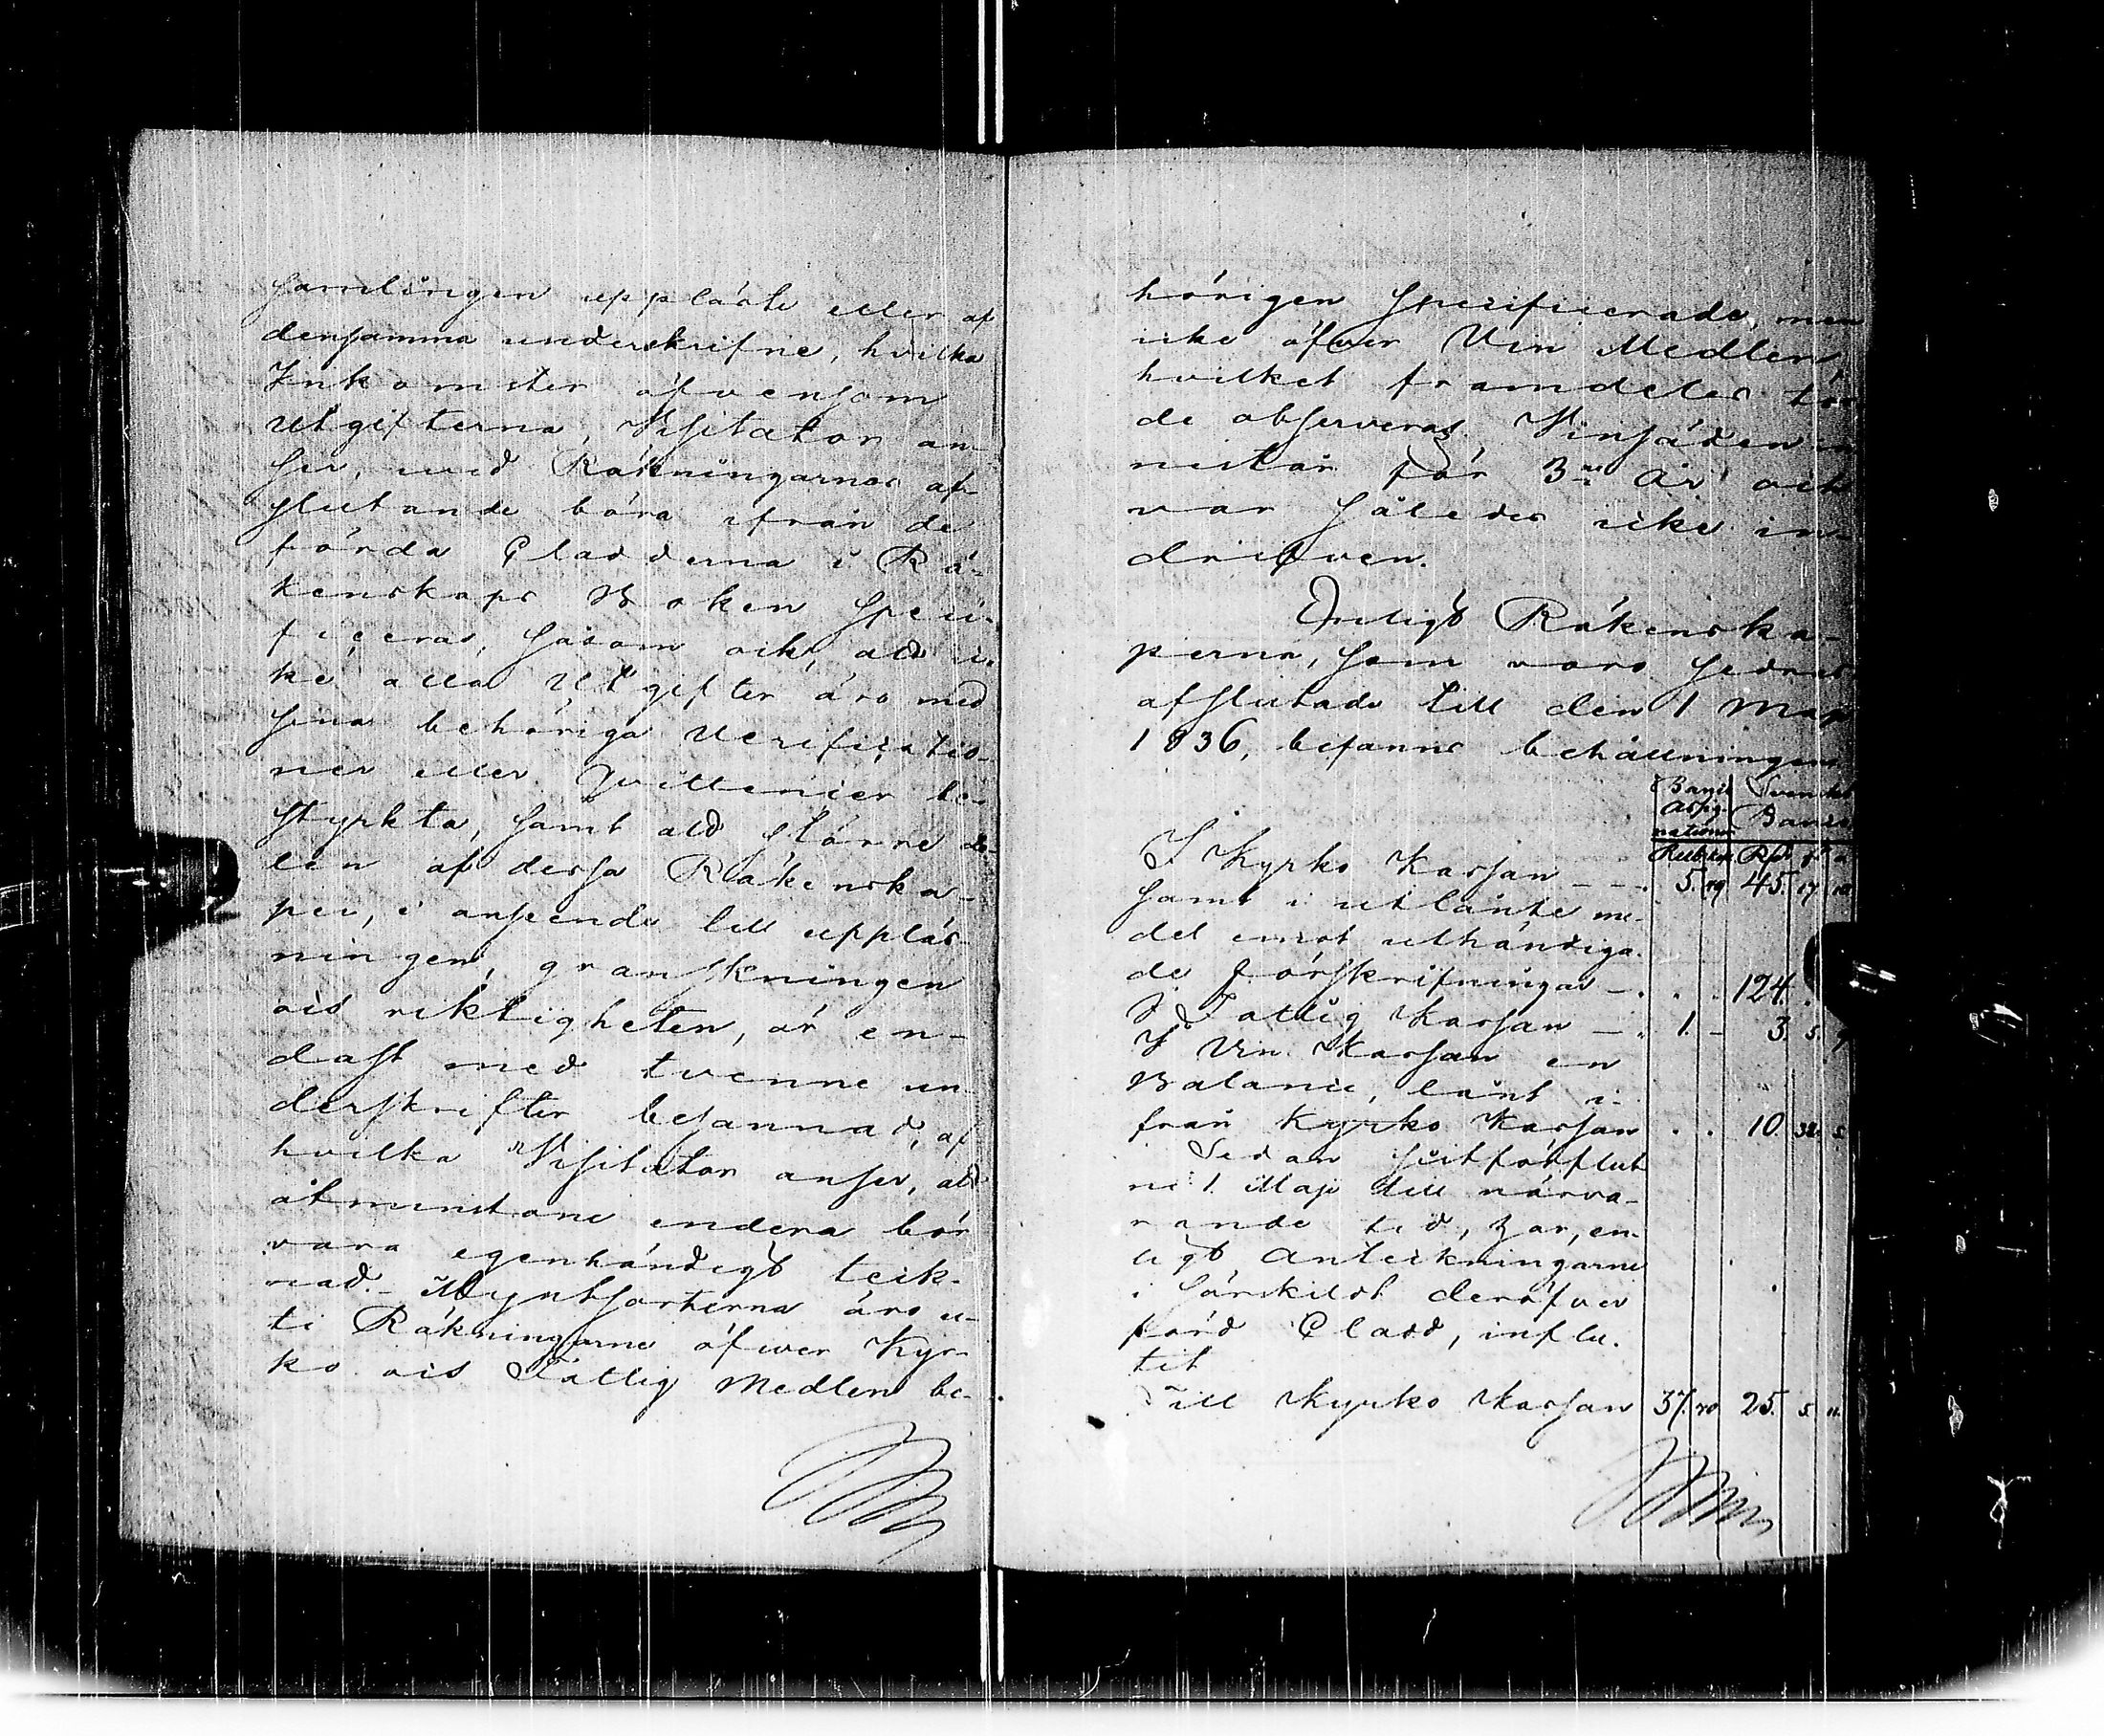 samlingen uppläste eller af
densamma underskrifne, hvilka
Inkomster äfvensom
Utgifterna, Visitator an-
ser, wid Räkningarnas af-
slutande böra ifrån de
förda Cladderna i Rä-
kenskaps Boken speci-
ficeras, såsom ock, att ic-
ke alla Utgifter äro med
sina behöriga Verificatio-
ner eller Qvittencier be-
styrkta, samt att större de-
len af dessa Räkenska-
per, i anseende till uppläs-
ningen, granskningen
och riktigheten, är en-
dast med tvenne un-
derskrifter besannad, af
hvilka Visitator anser, att
åtminstone endera bör
vara egenhändigt teck-
nad. Myntsorterna äro u-
ti Räkningarne öfwer Kyr-
ko och Fattig Medlen be-
hörigen specificerade, men
icke öfwer Vin Medlen,
hvilket framdeles tör-
de observeras. Vinsäden in-
nestår för 3ne År och
var således icke in-
drifven.
Enligt Räkenska-
perna, som voro sednast
afslutade till den 1 Maji
1836, befanns behållningen
Banco Assig-nationer Svenskt Banco
Rub. kop. Rdr sk. r.
I Kyrko Kassan - - - 5. 19 45. 17 10
samt i utlånte me-
del emot uthändiga-
de Förskrifningar - . . . 124. .
I Fattig Kassan - . 1. - 3. 5. 7
I Vin Kassan en
Balance, lånt i-
från Kyrko Kassan . . 10. 32. 5.
Sedan sistförflut-
ne 1. Maji till närva-
rande tid, har, en-
ligt Anteckningarne
i särskildt deröfver
förd Cladd, influ-
tit
Till Kyrko Kassan 37. 70 25. 5. 11.